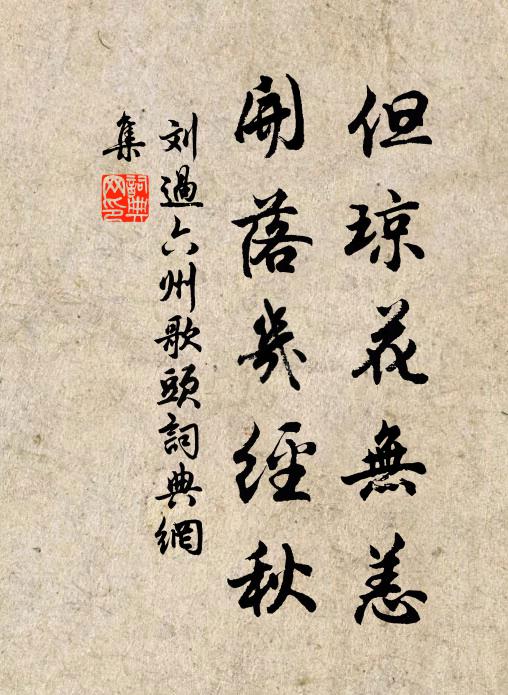 但琼花無恙
開落幾經秋
刘過六州歌頭詞典網
集
詞典
网印